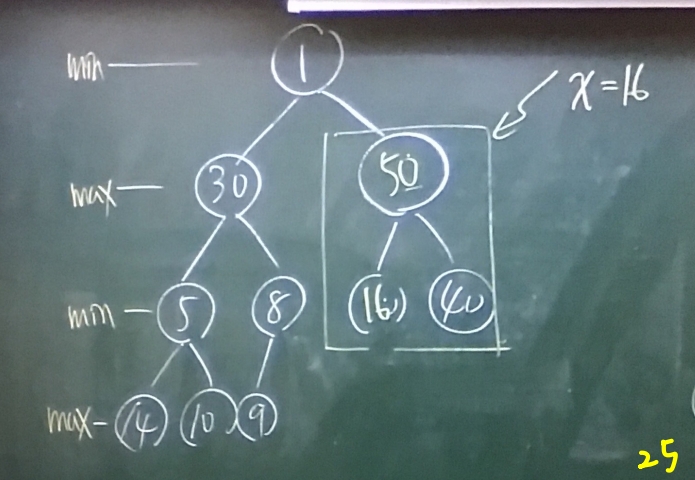 min 1
x=16
max 30 50
min 5 8 16 40
max 14 10 9
25